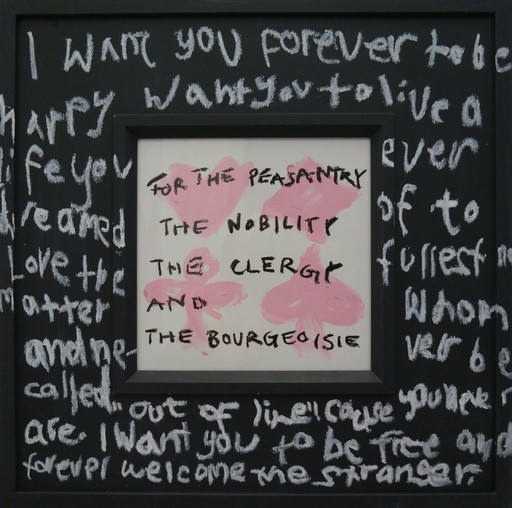 I want you forever to be
happy want you to live a
life you
ever
dreamed
of to
Love the
fullest
matter
Whom
and ne-
ver be
called "out of line" cause you never
are. I Want you to be free and
forever welcome the stranger.
FOR THE PEASANTRY
THE NOBILITY
THE CLERGY
AND
THE BOURGEOISIE